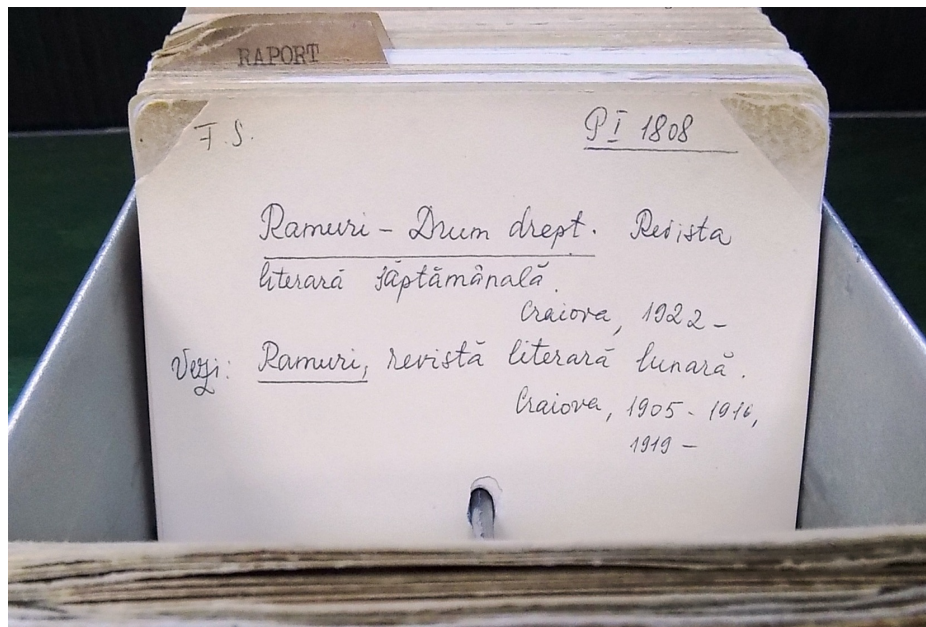 RAPORT
F. S. PI 1808
Ramuri - Drum drept. Revista
literară săptămânală.
Craiova, 1922 -
Vezi: Ramuri, revistă literară lunară.
Craiova, 1905 - 1916,
1919 -